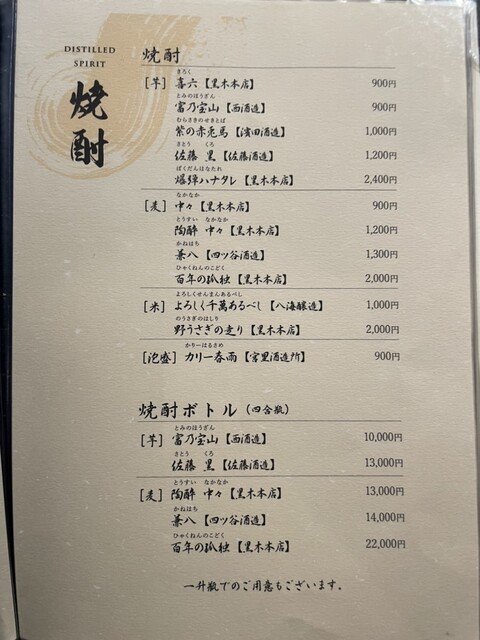 DISTILLED
SPIRIT
焼酎
焼酎
きろく
[芋] 喜六【黒木本店】 900円
とみのほうざん
富乃宝山【西酒造】 900円
むらさきのせきとば
紫の赤兎馬【濵田酒造】 1,000円
さとう くろ
佐藤 黒【佐藤酒造】 1,200円
ばくだんはなたれ
爆弾ハナタレ【黒木本店】 2,400円
なかなか
[麦] 中々【黒木本店】 900円
とうすい なかなか
陶酔 中々【黒木本店】 1,200円
かねはち
兼八【四ツ谷酒造】 1,300円
ひゃくねんのこどく
百年の孤独【黒木本店】 2,000円
よろしくせんまんあるべし
[米] よろしく千萬あるべし【八海醸造】 1,000円
のうさぎのはしり
野うさぎの走り【黒木本店】 2,000円
かりーはるさめ
[泡盛] カリー春雨【宮里酒造所】 900円
焼酎ボトル（四合瓶）
とみのほうざん
[芋] 富乃宝山【西酒造】 10,000円
さとう くろ
佐藤 黒【佐藤酒造】 13,000円
とうすい なかなか
[麦] 陶酔 中々【黒木本店】 13,000円
かねはち
兼八【四ツ谷酒造】 14,000円
ひゃくねんのこどく
百年の孤独【黒木本店】 22,000円
一升瓶でのご用意もございます。